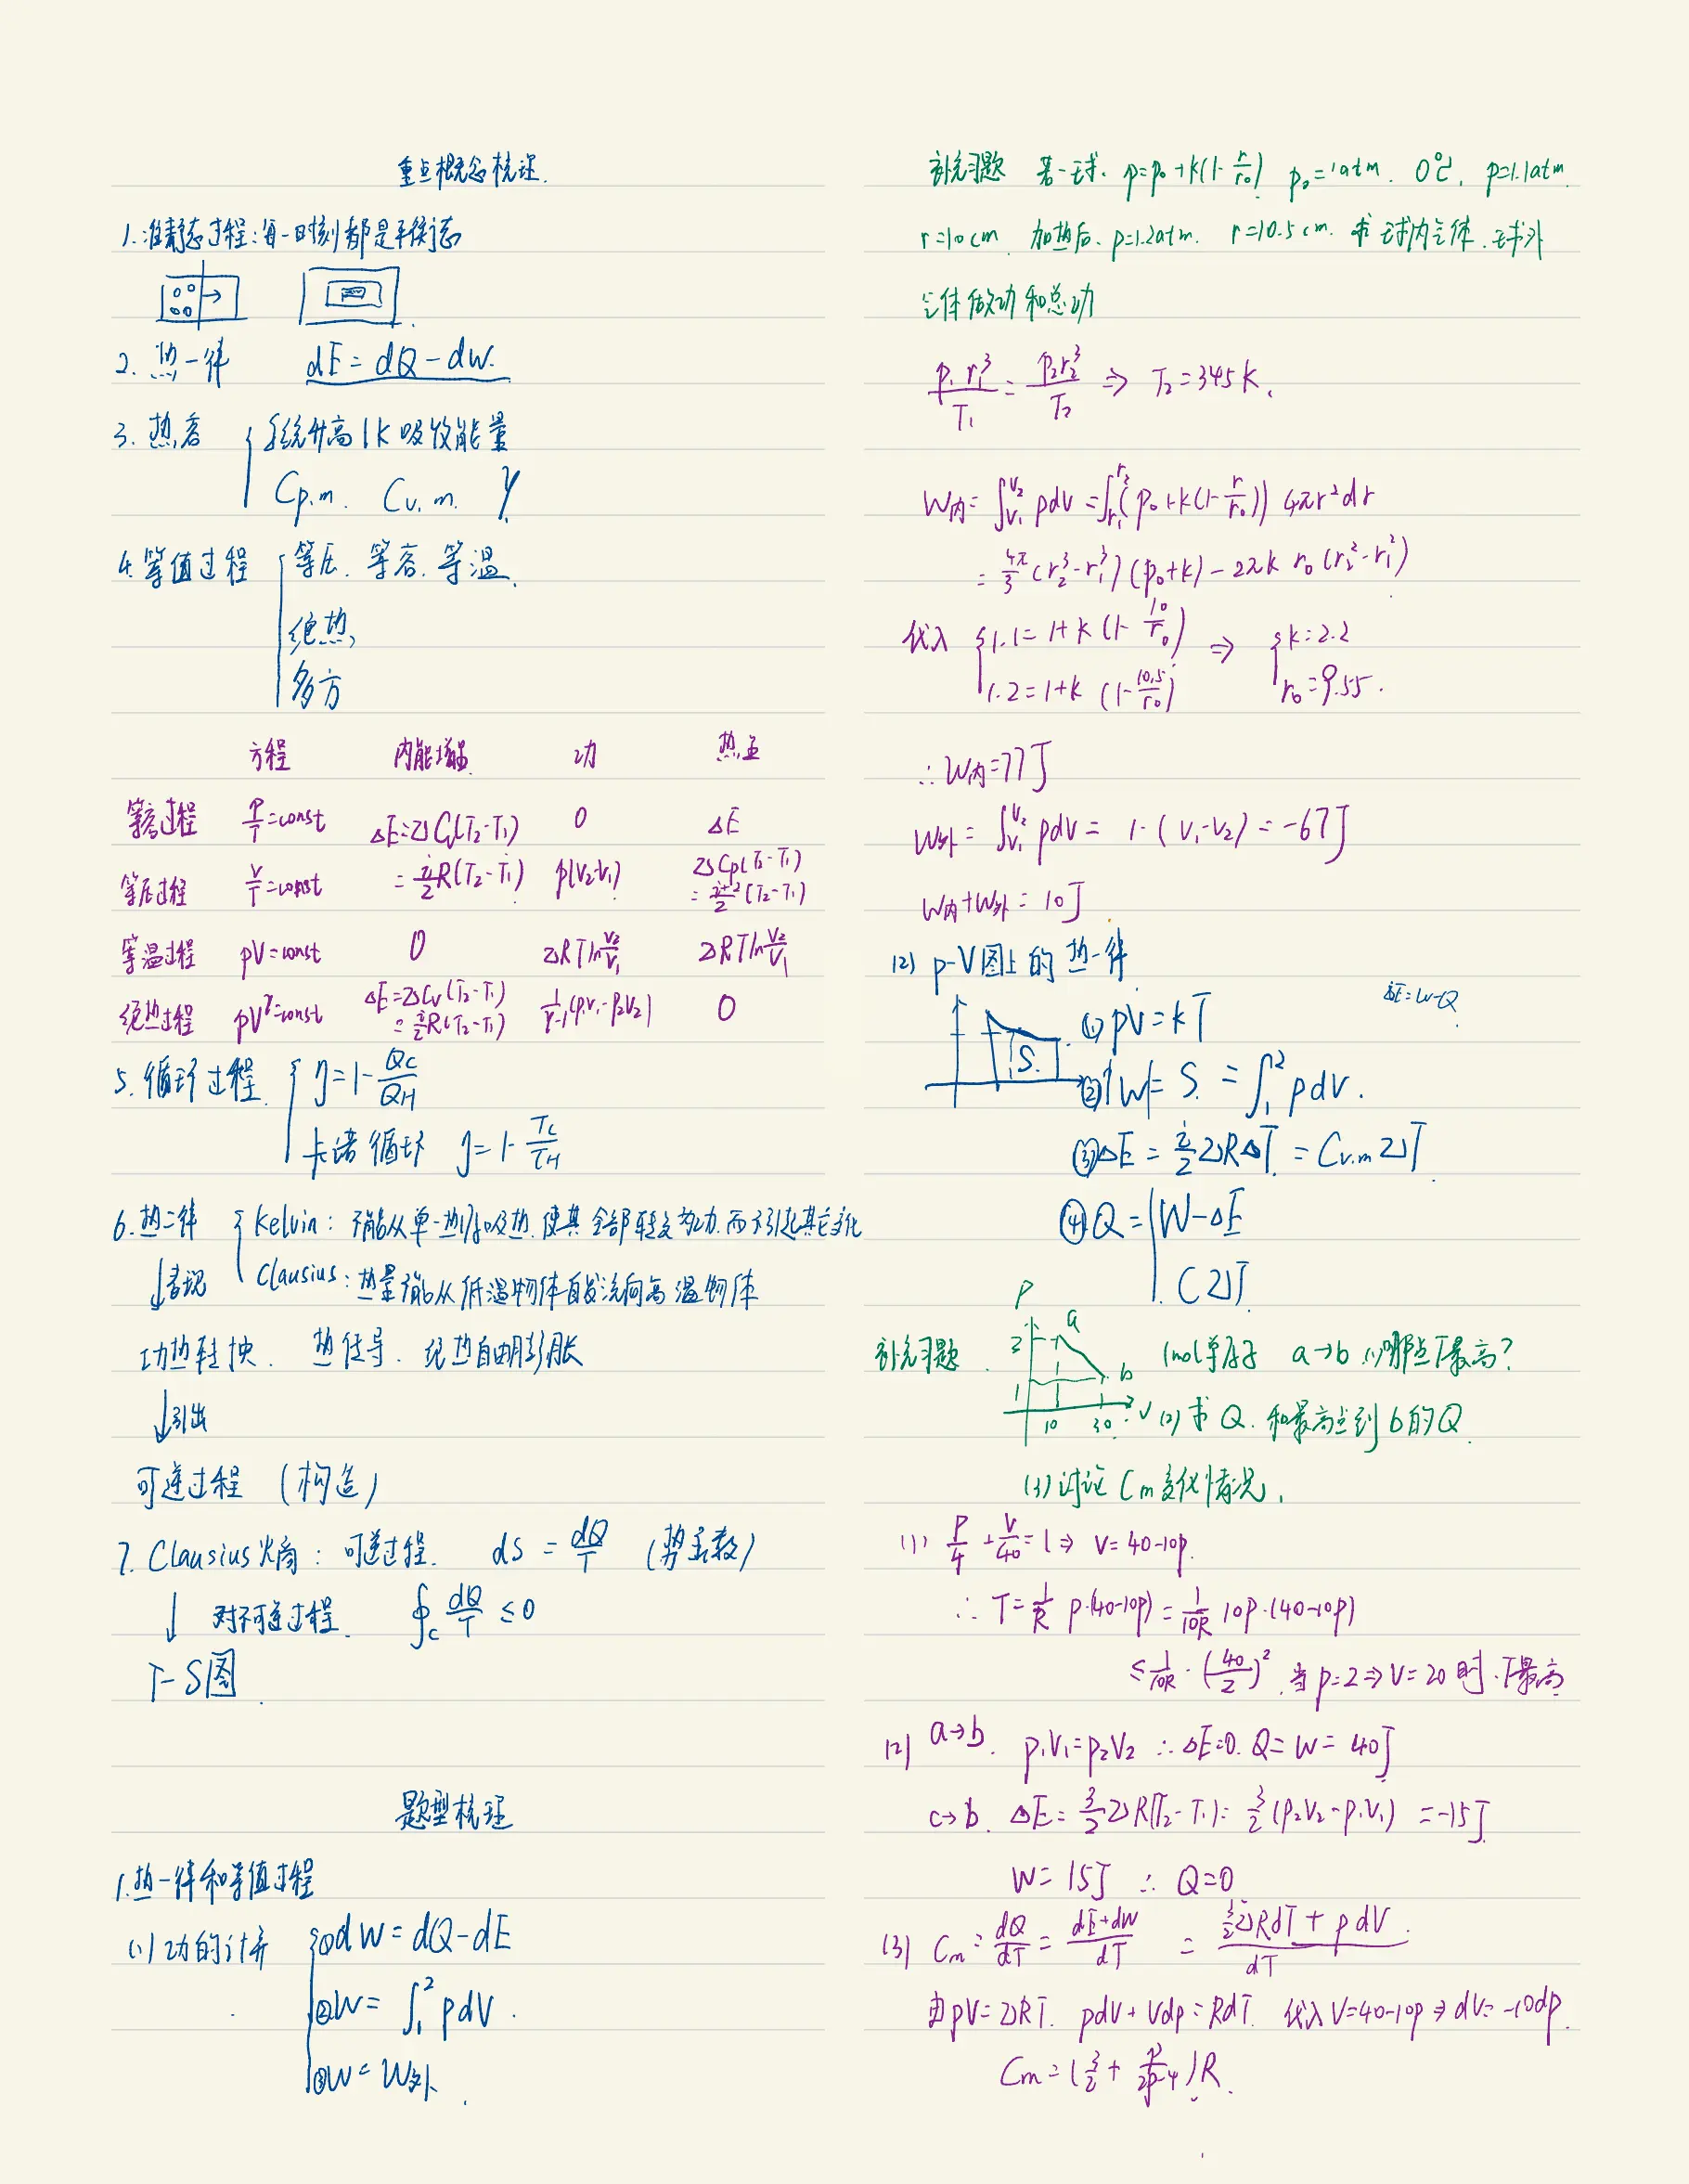 重点概念梳理.
1.准静态过程:每一时刻都是平衡态
2. 热一律 dE = dQ - dW.
3. 热容 { 系统升高1K吸收能量
Cp.m. Cv.m. γ
4.等值过程 { 等压. 等容. 等温.
绝热,
多方
方程 内能增量 功 热量
等容过程 P/T=const ΔE=νCv(T2-T1) 0 ΔE
等压过程 V/T=const =i/2R(T2-T1) p(V2-V1) νCp(T2-T1) =i+2/2(T2-T1)
等温过程 pV=const 0 νRTlnV2/V1 νRTlnV2/V1
绝热过程 pV^γ=const ΔE=νCv(T2-T1) =i/2R(T2-T1) 1/γ-1(p1V1-p2V2) 0
5.循环过程 { η=1-QC/QH
卡诺循环 η=1-TC/TH
6.热二律 { Kelvin: 不能从单一热源吸热.使其全部转变为功.而不引起其它变化
↓表现 Clausius: 热量不能从低温物体自发流向高温物体
功热转换. 热传导. 绝热自由膨胀
↓引出
可逆过程 (构造)
7. Clausius熵: 可逆过程. dS = dQ/T (势函数)
↓ 对不可逆过程. ∮c dQ/T ≤0
T-S图
题型梳理
1.热一律和等值过程
(1) 功的计算 { ①dW=dQ-dE
②W= ∫₁² pdV.
③W=W外
补充习题 若一球. p=p0+k(1-r/r0) p0=1atm. 0℃. p=1.1atm.
r=10cm. 加热后. p=1.2atm. r=10.5cm. 求球内气体.球外
气体做功和总功
p1r1³/T1 = p2r2³/T2 ⇒ T2=345K.
W内=∫V1^V2 pdV=∫r1^r2(p0+k(1-r/r0)) 4πr²dr
= 4π/3(r2³-r1³)(p0+k)-2πk r0(r2²-r1²)
代入 { 1.1=1+k(1-10/r0) ⇒ { k=2.2
1.2=1+k(1-10.5/r0) r0=9.55.
∴W内=77J
W外=∫V1^V2 pdV= 1·(V1-V2)=-67J
W内+W外=10J
(2) p-V图上的热一律
ΔE=W-Q
S. ①pV=kT
②|W|=S.=∫₁² pdV.
③ΔE=i/2νRΔT.=Cv.mνT
④Q={ W-ΔE
CνT.
补充习题. P 2 1 a b 10 30 V 1mol单原子 a→b (1)哪点T最高?
(2)求Q.和最高点到b的Q
(3)讨论Cm变化情况.
(1) P/4+V/40=1⇒V=40-10p.
∴T=1/R p·(40-10p)=1/10R 10p·(40-10p)
≤1/10R·(40/2)². 当p=2⇒V=20时.T最高
(2) a→b. p1V1=p2V2 ∴ΔE=0.Q=W=40J
c→b. ΔE=3/2νR(T2-T1)=3/2(p2V2-p1V1)=-15J
W=15J ∴Q=0
(3) Cm=dQ/dT=dE+dW/dT = 3/2νRdT+pdV/dT
由pV=νRT. pdV+Vdp=RdT. 代入V=40-10p⇒dV=-10dp.
Cm=(3/2+p/2p-4)R.